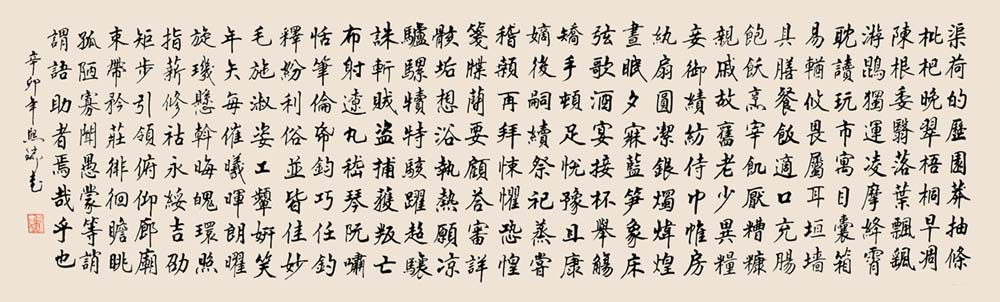 渠荷的歷園莽抽條
枇杷晚翠梧桐早凋
陳根委翳落葉飄颻
游鵾獨運凌摩絳霄
耽讀玩市寓目囊箱
易輶攸畏屬耳垣墻
具膳餐飯適口充腸
飽飫烹宰飢厭糟糠
親戚故舊老少異糧
妾御績紡侍巾帷房
紈扇圓潔銀燭煒煌
晝眠夕寐藍笋象床
弦歌酒宴接杯舉觴
矯手頓足悅豫且康
嫡後嗣續祭祀蒸嘗
稽顙再拜悚懼恐惶
箋牒簡要顧答審詳
骸垢想浴執熱願凉
驢騾犢特駭躍超驤
誅斬賊盜捕獲叛亡
布射遼丸嵇琴阮嘯
恬筆倫帋鈞巧任釣
釋紛利俗並皆佳妙
毛施淑姿工顰妍笑
年矢每催曦暉朗曜
旋璣懸斡晦魄環照
指薪修祜永綏吉劭
矩步引領俯仰廊廟
束帶矜莊徘徊瞻眺
孤陋寡聞愚蒙等誚
謂語助者焉哉乎也
辛卯年